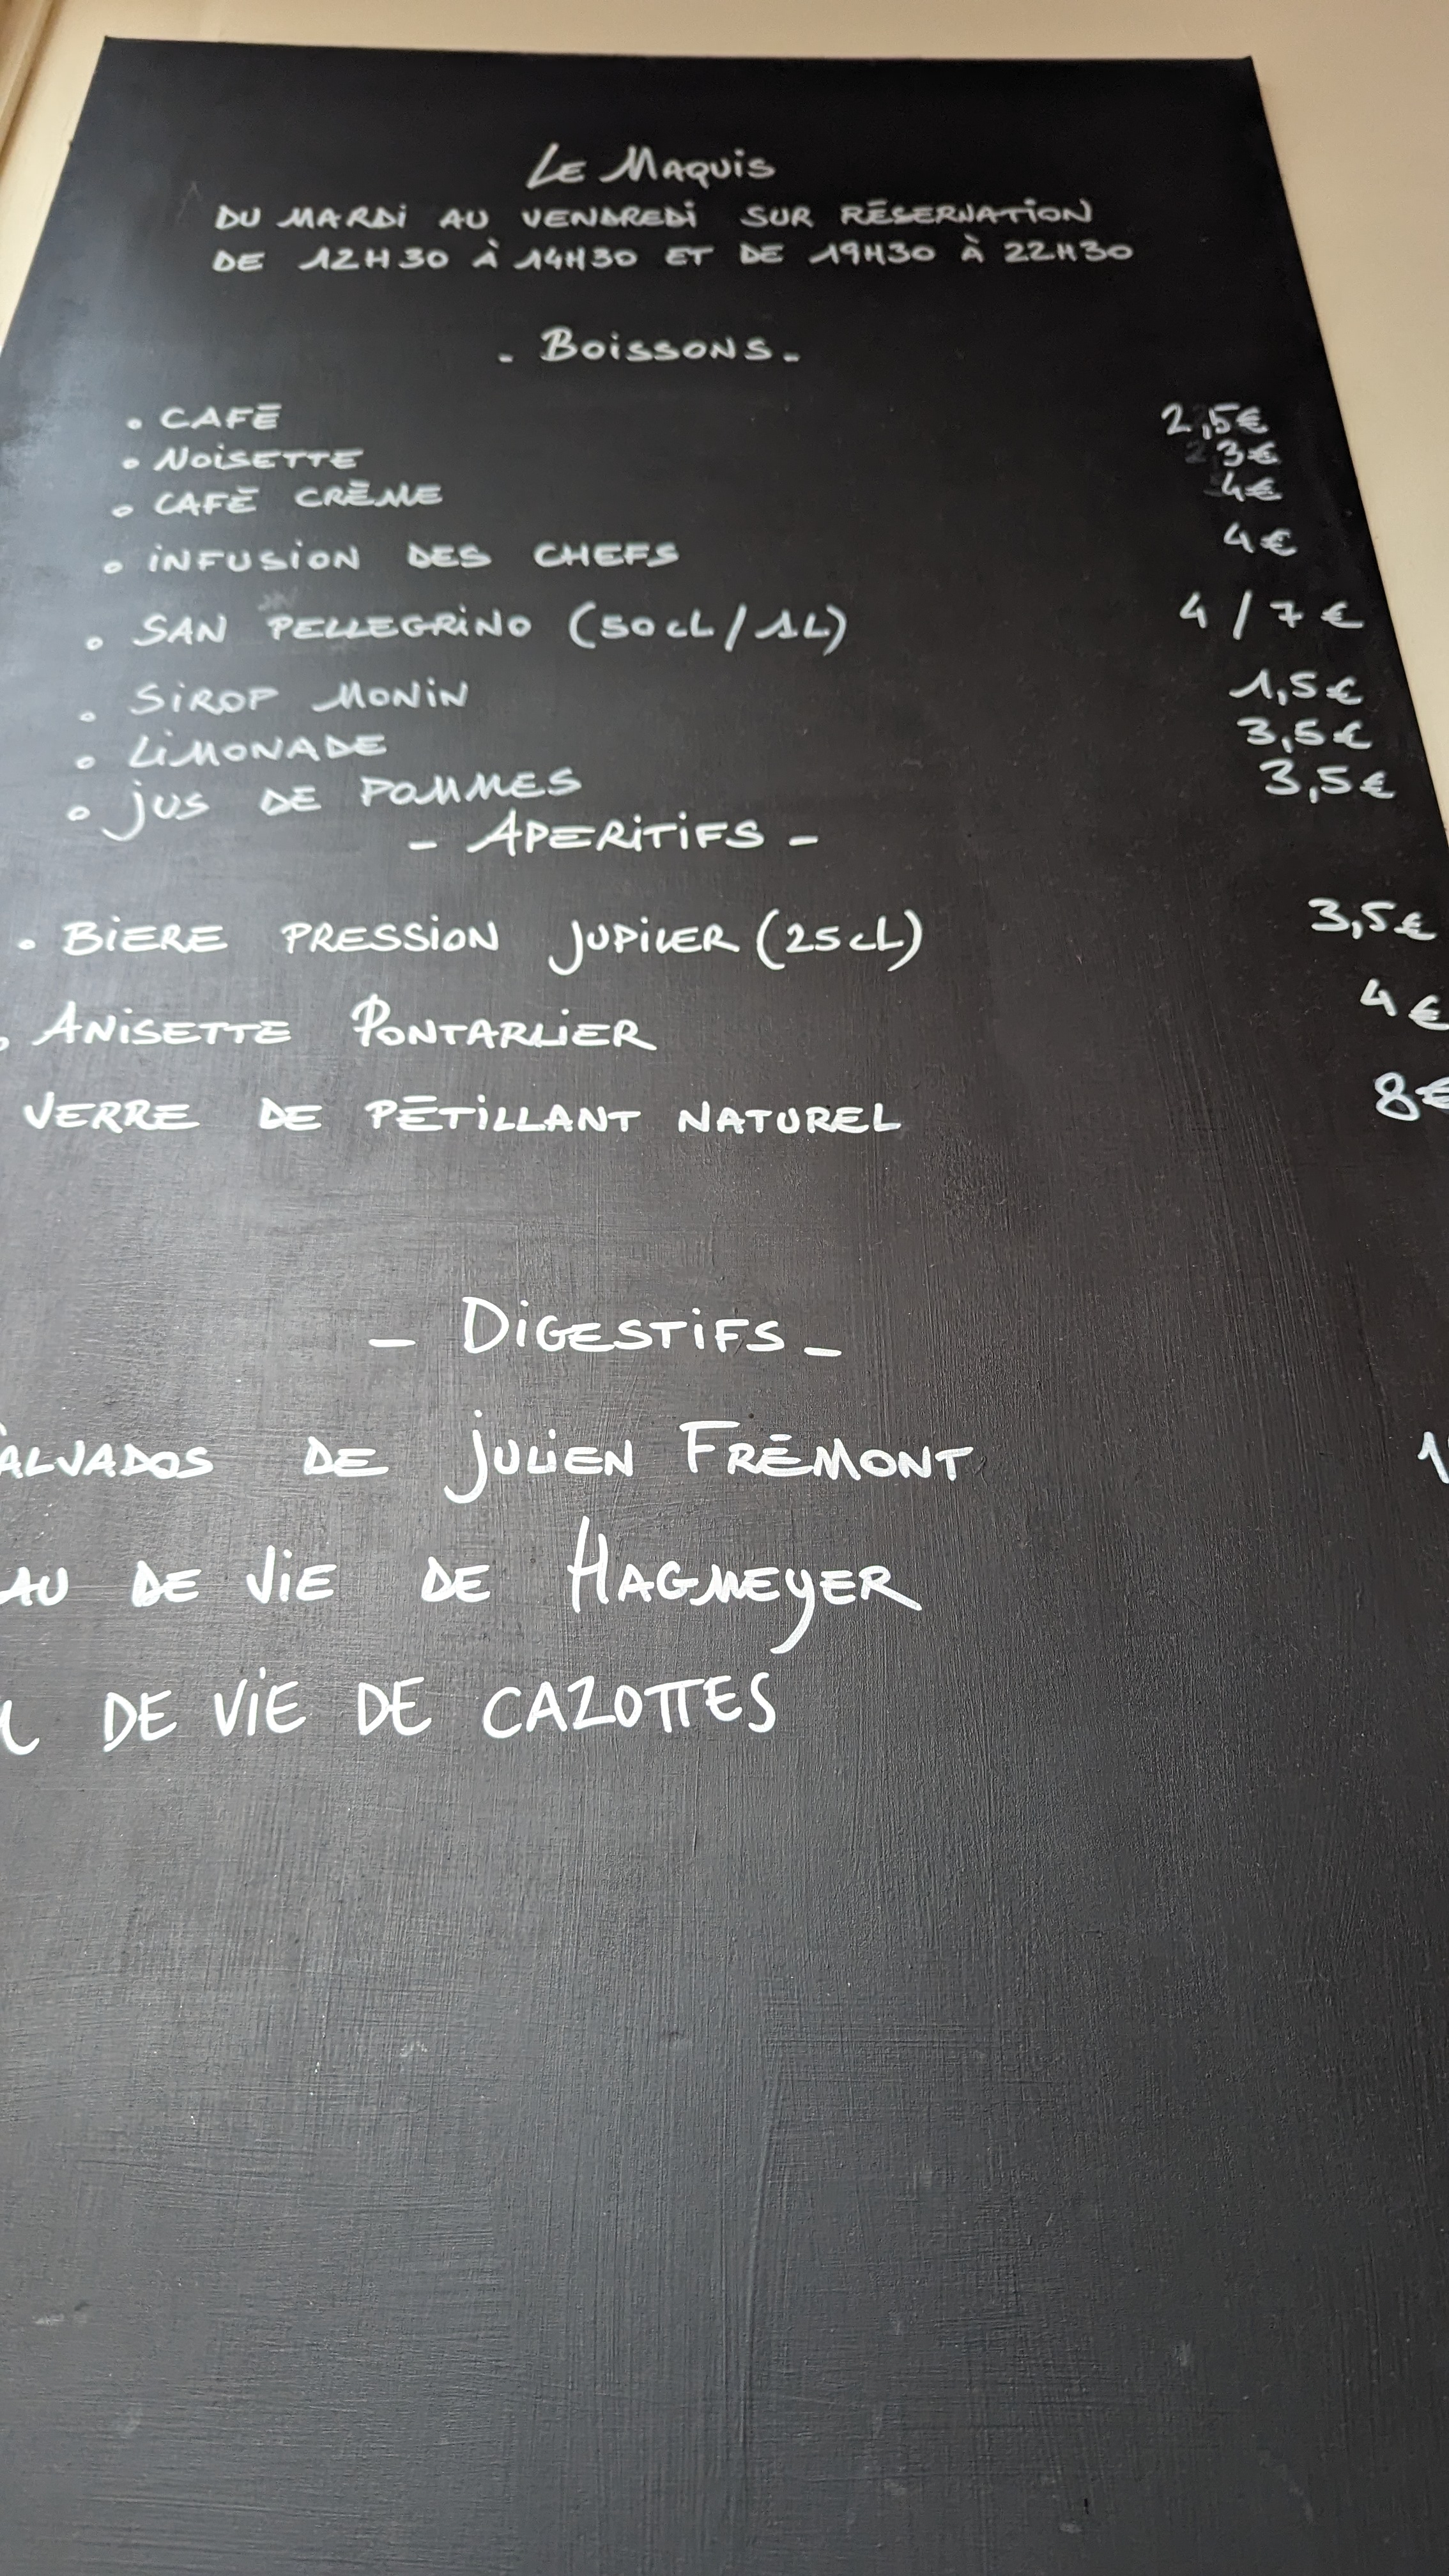 LE MAQUIS
DU MARDI AU VENDREDI SUR RÉSERVATION
DE 12H30 À 14H30 ET DE 19H30 À 22H30
- BOISSONS -
• CAFÉ 2,5€
• NOISETTE 3€
• CAFÉ CRÈME 4€
• INFUSION DES CHEFS 4€
• SAN PELLEGRINO (50cL / 1L) 4 / 7 €
• SIROP MONIN 1,5€
• LIMONADE 3,5€
• JUS DE POMMES 3,5€
- APERITIFS -
• BIERE PRESSION JUPILER (25cL) 3,5€
• ANISETTE PONTARLIER 4€
VERRE DE PÉTILLANT NATUREL 8€
- DIGESTIFS -
ALVADOS DE JULIEN FRÉMONT
AU DE VIE DE HAGMEYER
DE VIE DE CAZOTTES